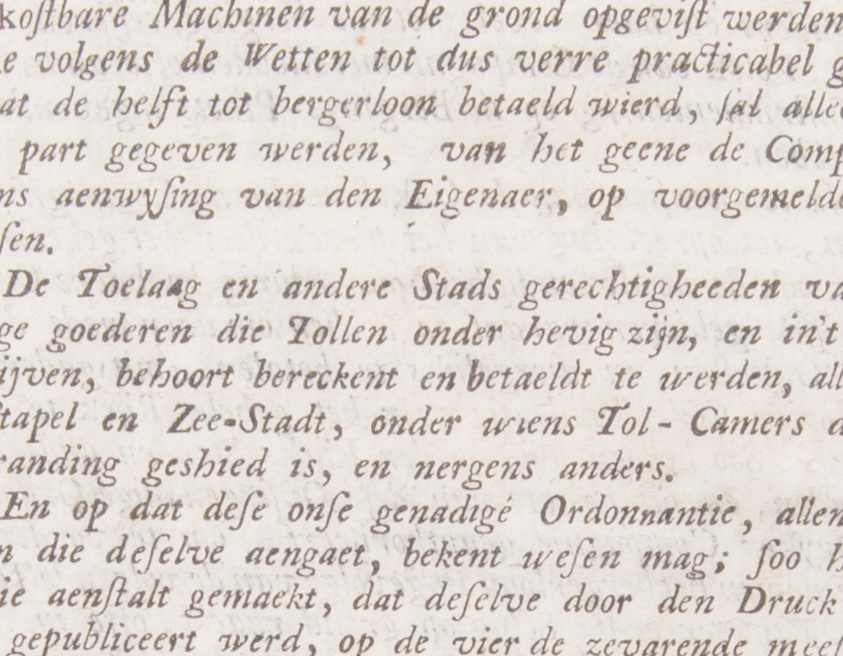 koſtbare Machinen van de grond opgeviſt werden
e volgens de Wetten tot dus verre practicabel g
at de helft tot bergerloon betaeld wierd, ſal alle
part gegeven werden, van het geene de Comp
ns aenwyſing van den Eigenaer, op voorgemelde
ſen.
De Toelaag en andere Stads gerechtigheeden va
ge goederen die Tollen onder hevig zijn, en in't
ijven, behoort bereckent en betaeldt te werden, all
ſtapel en Zee-Stadt, onder wiens Tol-Camers d
randing geshied is, en nergens anders.
En op dat deſe onſe genadige Ordonnantie, allen
n die deſelve aengaet, bekent weſen mag; ſoo h
ie aenſtalt gemaekt, dat deſelve door den Druck
gepubliceert werd, op de vier de zevarende meeſ